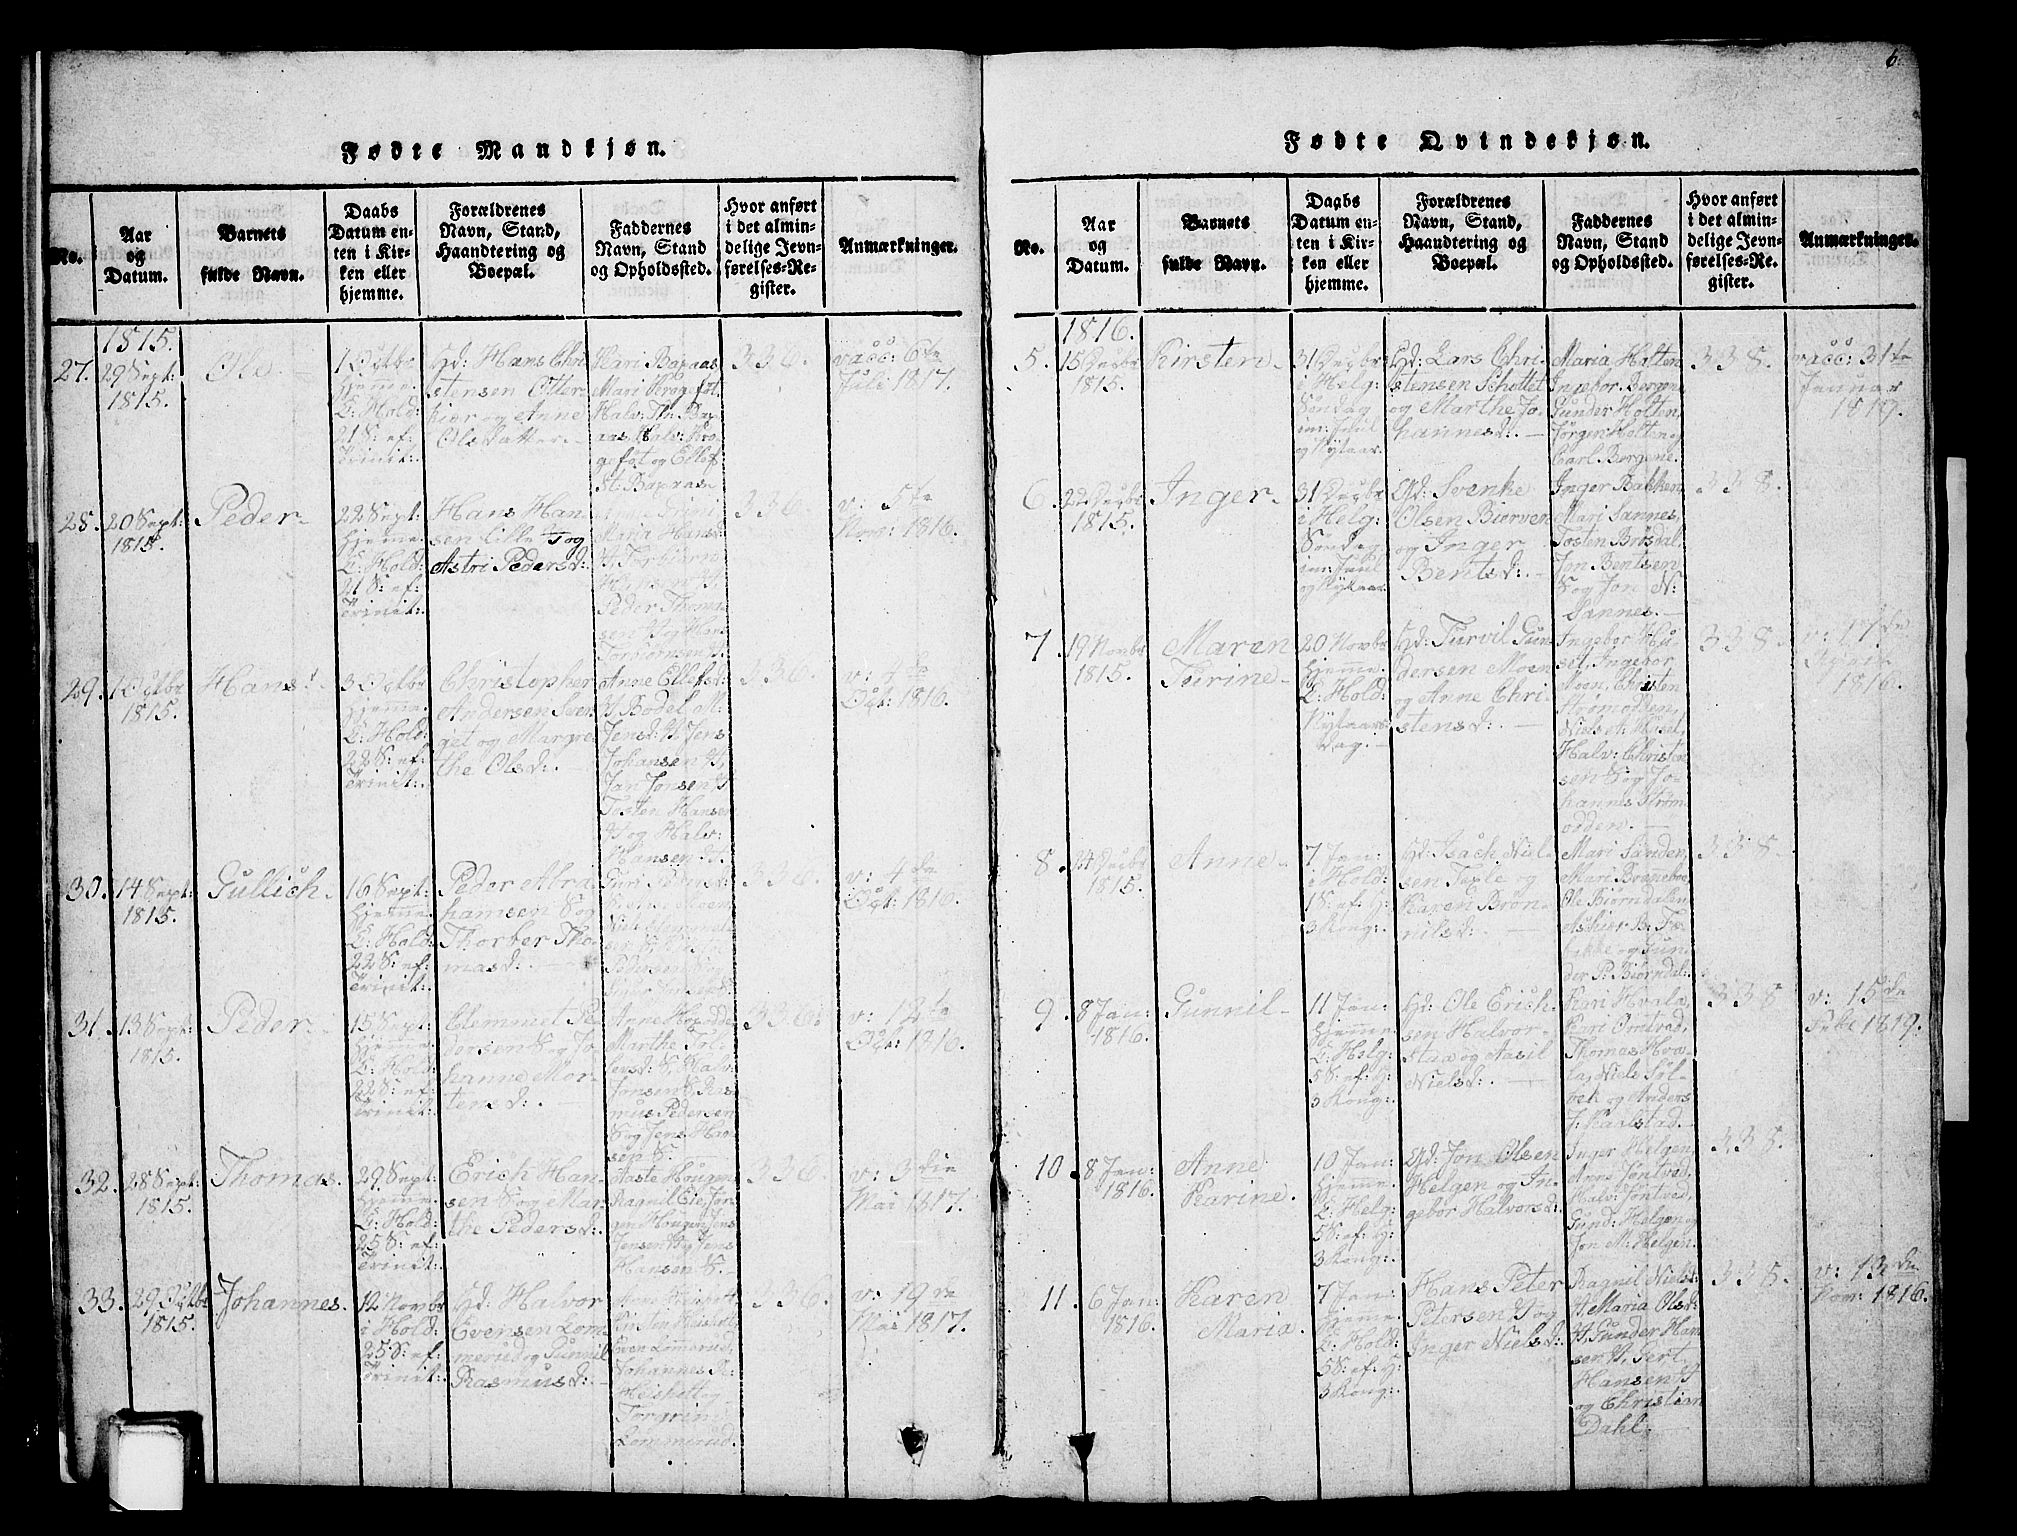 6
Fødte Mandkjøn.
No.
Aar
og
Datum.
Barnets
fulde Navn.
Daabs
Datum en-
ten i Kir-
ken eller
hjemme.
Forældrenes
Navn, Stand,
Haandtering og
Boepæl.
Faddernes
Navn, Stand
og Opholdssted.
Hvor anført
i det almin-
delige Jevn-
førelses-Re-
gister.
Anmærkninger.
1815.
27.
29 Sept:
1815.
Ole
1 Octbr
hjemme
I: Hold:
21 S: ef:
Trinit:
Gd: Hans Chri
stensen Otter-
kier og Anne
Olsdatter.
336.
vacc: 6te
Juli 1817.
28.
20 Sept:
1815.
Peder
22 Sept:
hjemme
I: Hold:
21 S: ef:
Trinit:
Hans Han-
sen lille H og
Astri Pedersd:
Maria Hansd:
H. Torbiørn
Hansen H,
Peder Thoma-
sen H og Hans
Torbiørnsen H.
336
v: 5te
Nov: 1816.
29.
1 Octbr
1815.
Hans
3 Octbr
hjemme
I: Hold:
22 S: ef:
Trinit:
Christopher
Andersen
get og Margre-
the Olsd:
Anne Ellefsd:
H, Bodel M.
Jensd: H, Jens
Johansen H,
Jan Jensen H
Tosten Hansen
H og Halv:
Hansen H.
336.
v: 4de
Oct: 1816.
30.
14 Sept:
1815.
Gullich
16 Sept:
hjemme
I: Hold:
22 S: ef:
Trinit:
Peder Abra
hamsen S og
Thorber Tho-
masd:
336.
v: 4de
Oct: 1816.
31.
13 Sept:
1815.
Peder
15 Sept:
hjemme
I: Hold:
22 S: ef:
Trinit:
Clemmet Pe-
dersen S og Jo-
hanne Mor-
tensd:
Marthe
S, Halv:
Jensen S, Ras-
mus Pedersen
S og Jens Han-
sen S.
336.
v: 12te
Oct: 1816.
32.
28 Sept:
1815.
Thomas.
29 Sept:
hjemme
I: Hold:
25 S: ef:
Trinit:
Erich Han-
sen S og Mar-
the Pedersd:
Aaste Hougen
Ragnil Eie, Jør-
gen Hougen, Jens
Jensen H og Jens
Hansen S.
336.
v: 3die
Mai 1817.
33.
29 Octbr
1815.
Johannes.
12 Novbr
i Hold:
25 S: ef:
Trinit:
Gd: Halvor
Evensen Lom-
merud og Gunnil
Rasmusd:
Even Lommerud,
Johannes R.
Heisholt og
Torgrim
Lommerud.
336.
v: 19de
Mai 1817.
Fødte Qvindekjøn.
No.
Aar
og
Datum.
Barnets
fulde Navn.
Daabs
Datum en-
ten i Kir-
ken eller
hjemme.
Forældrenes
Navn, Stand,
Haandtering og
Boepæl.
Faddernes
Navn, Stand
og Opholdssted.
Hvor anført
i det almin-
delige Jevn-
førelses-Re-
gister.
Anmærkninger.
1816.
5.
15 Decbr
1815.
Kirsten
31 Decbr
i Helg:
Søndag
im: Juul
og Nytaar.
Gd: Lars Chri-
stensen Schottet
og Marthe Jo-
hannesd:
Maria Holten,
Ingebor Bergene,
Gunder Holten,
Jørgen Holten og
Carl Bergene.
338.
vacc: 31te
Januar
1817.
6.
22 Decbr
1815.
Inger
31 Decbr
i Helg:
Søndag
im: Juul
og Nytaar
Gd: Svenke
Olsen Biørven
og Inger
Bentsd:
Inger Bakken,
Mari Sannes,
Tosten Brøsdal,
Jon Bentsen
S og Jon N:
Sannes.
338.
7.
19 Novbr
1815.
Maren
Turine
20 Novbr
hjemme
I: Hold:
Nytaars-
dag.
Gd: Turvil Gun-
dersen Moen
og Anne Chri-
stensd:
Ingebor Hu-
set, Ingebor
Moen, Christen
Strømodden,
Niels A: Huset,
Halv: Christen-
sen S og Jo-
hannes Strøm-
odden.
338.
v: 17de
1816.
8.
24 Decbr
1815.
Anne
7 Jan:
i Hold:
1 S: ef: H:
3 Kong:
Gd: Isach Niel-
sen Texle og
Karen Bryn-
nilsd:
Mari Sanden,
Mari Bronebor,
Ole Biørndalen,
Aslack B. Te-
bekke og Gun-
der P. Biørndal.
338
9.
8 Jan:
1816.
Gunnil
11 Jan:
hjemme
I: Helg:
5 S: ef: H:
3 Kong:
Gd: Ole Erich-
sen Halvor-
staa og Aasil
Nielsd:
Kari Hvala,
Kari Ørntvad,
Thomas Hva-
la, Niels Søl-
vek og Anders
J. Kaalstad.
338
v: 15de
Febr 1819.
10.
8 Jan:
1816.
Anne
Karine.
10 Jan:
hjemme
I: Helg:
5 S: ef: H:
3 Kong:
Gd: Jon Olsen
Helgen og In-
gebor Halvorsd:
Inger Helgen,
Anne Jøntvet,
Halv: Jøntvet,
Gund: Helgen og
Jon M: Helgen.
335.
11.
6 Jan:
1816.
Karen
Maria.
7 Jan:
hjemme
I: Hold:
5 S: ef: H:
3 Kong:
Hans Peter
Petersen H og
Inger Nielsd:
Ragnil Nielsd:
H, Maria Olsd:
H, Gunder Han-
sen H, Gert
Hansen H
og Christian
Dahl.
335.
v: 13die
Nov: 1816.